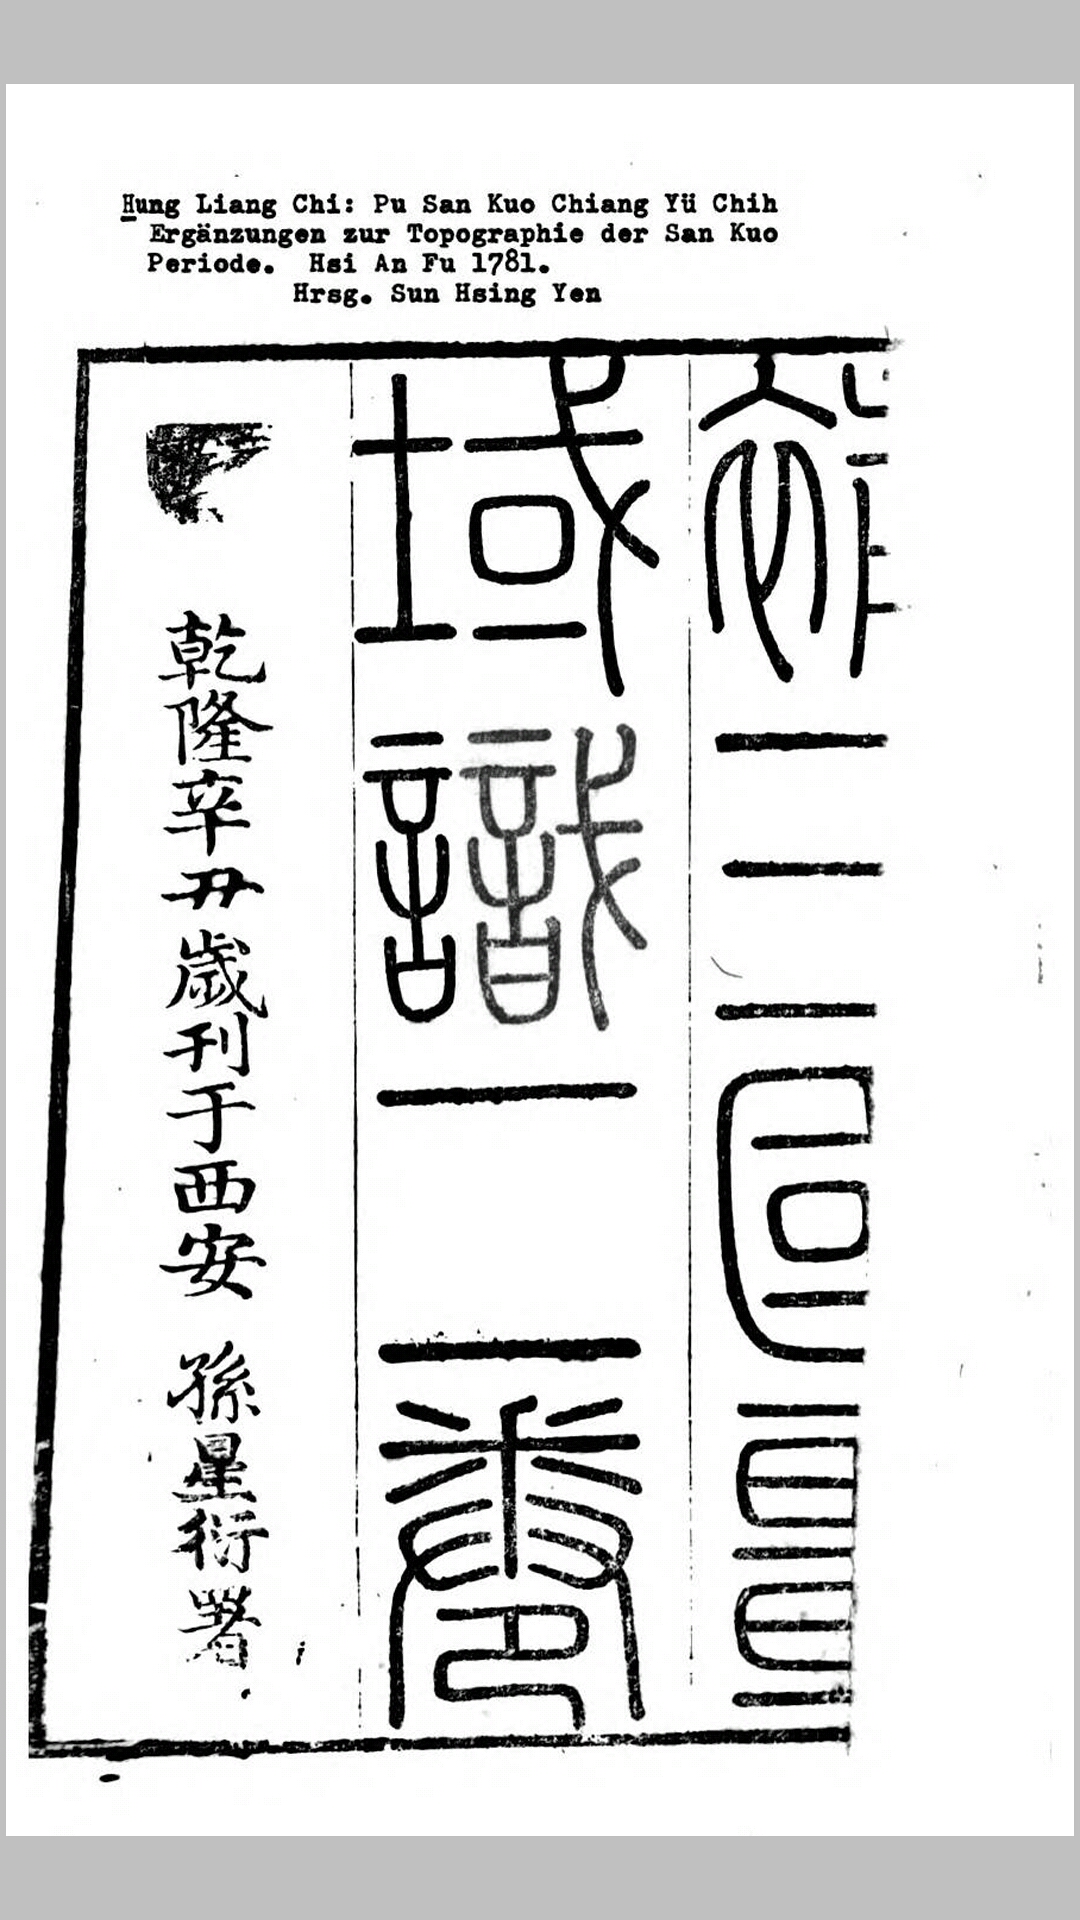 Hung Liang Chi: Pu San Kuo Chiang Yü Chih
Ergänzungen zur Topographie der San Kuo
Periode. Hsi An Fu 1781.
Hrsg. Sun Hsing Yen
補三國畺
域識二卷
乾隆辛丑歲刊于西安 孫星衍署